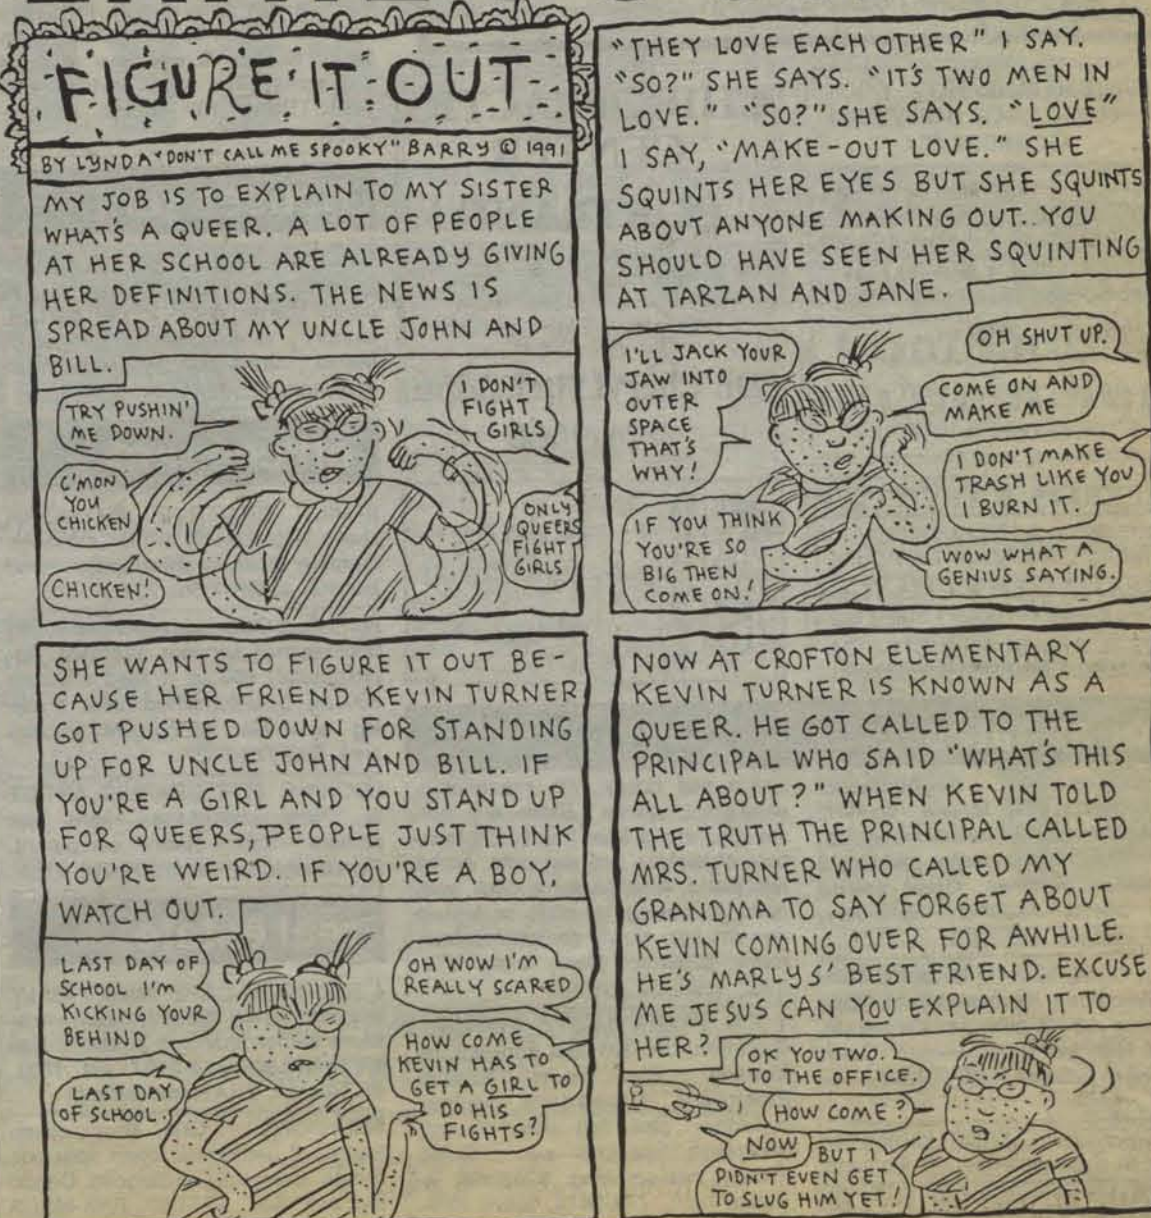 FIGURE IT OUT
BY LYNDA "DON'T CALL ME SPOOKY" BARRY © 1991
MY JOB IS TO EXPLAIN TO MY SISTER
WHAT'S A QUEER. A LOT OF PEOPLE
AT HER SCHOOL ARE ALREADY GIVING
HER DEFINITIONS. THE NEWS IS
SPREAD ABOUT MY UNCLE JOHN AND
BILL.
TRY PUSHIN'
ME DOWN.
C'MON
YOU
CHICKEN
CHICKEN!
I DON'T
FIGHT
GIRLS
ONLY
QUEERS
FIGHT
GIRLS
"THEY LOVE EACH OTHER" I SAY.
"SO?" SHE SAYS. "IT'S TWO MEN IN
LOVE." "SO?" SHE SAYS. "LOVE"
I SAY, "MAKE-OUT LOVE." SHE
SQUINTS HER EYES BUT SHE SQUINTS
ABOUT ANYONE MAKING OUT. YOU
SHOULD HAVE SEEN HER SQUINTING
AT TARZAN AND JANE.
I'LL JACK YOUR
JAW INTO
OUTER
SPACE
THAT'S
WHY!
OH SHUT UP.
COME ON AND
MAKE ME
I DON'T MAKE
TRASH LIKE YOU
I BURN IT.
IF YOU THINK
YOU'RE SO
BIG THEN
COME ON!
WOW WHAT A
GENIUS SAYING.
SHE WANTS TO FIGURE IT OUT BE-
CAUSE HER FRIEND KEVIN TURNER
GOT PUSHED DOWN FOR STANDING
UP FOR UNCLE JOHN AND BILL. IF
YOU'RE A GIRL AND YOU STAND UP
FOR QUEERS, PEOPLE JUST THINK
YOU'RE WEIRD. IF YOU'RE A BOY,
WATCH OUT.
LAST DAY OF
SCHOOL I'M
KICKING YOUR
BEHIND
LAST DAY
OF SCHOOL.
OH WOW I'M
REALLY SCARED
HOW COME
KEVIN HAS TO
GET A GIRL TO
DO HIS
FIGHTS?
NOW AT CROFTON ELEMENTARY
KEVIN TURNER IS KNOWN AS A
QUEER. HE GOT CALLED TO THE
PRINCIPAL WHO SAID "WHAT'S THIS
ALL ABOUT?" WHEN KEVIN TOLD
THE TRUTH THE PRINCIPAL CALLED
MRS. TURNER WHO CALLED MY
GRANDMA TO SAY FORGET ABOUT
KEVIN COMING OVER FOR AWHILE.
HE'S MARLYS' BEST FRIEND. EXCUSE
ME JESUS CAN YOU EXPLAIN IT TO
HER?
OK YOU TWO.
TO THE OFFICE.
HOW COME?
NOW
BUT I
DIDN'T EVEN GET
TO SLUG HIM YET!